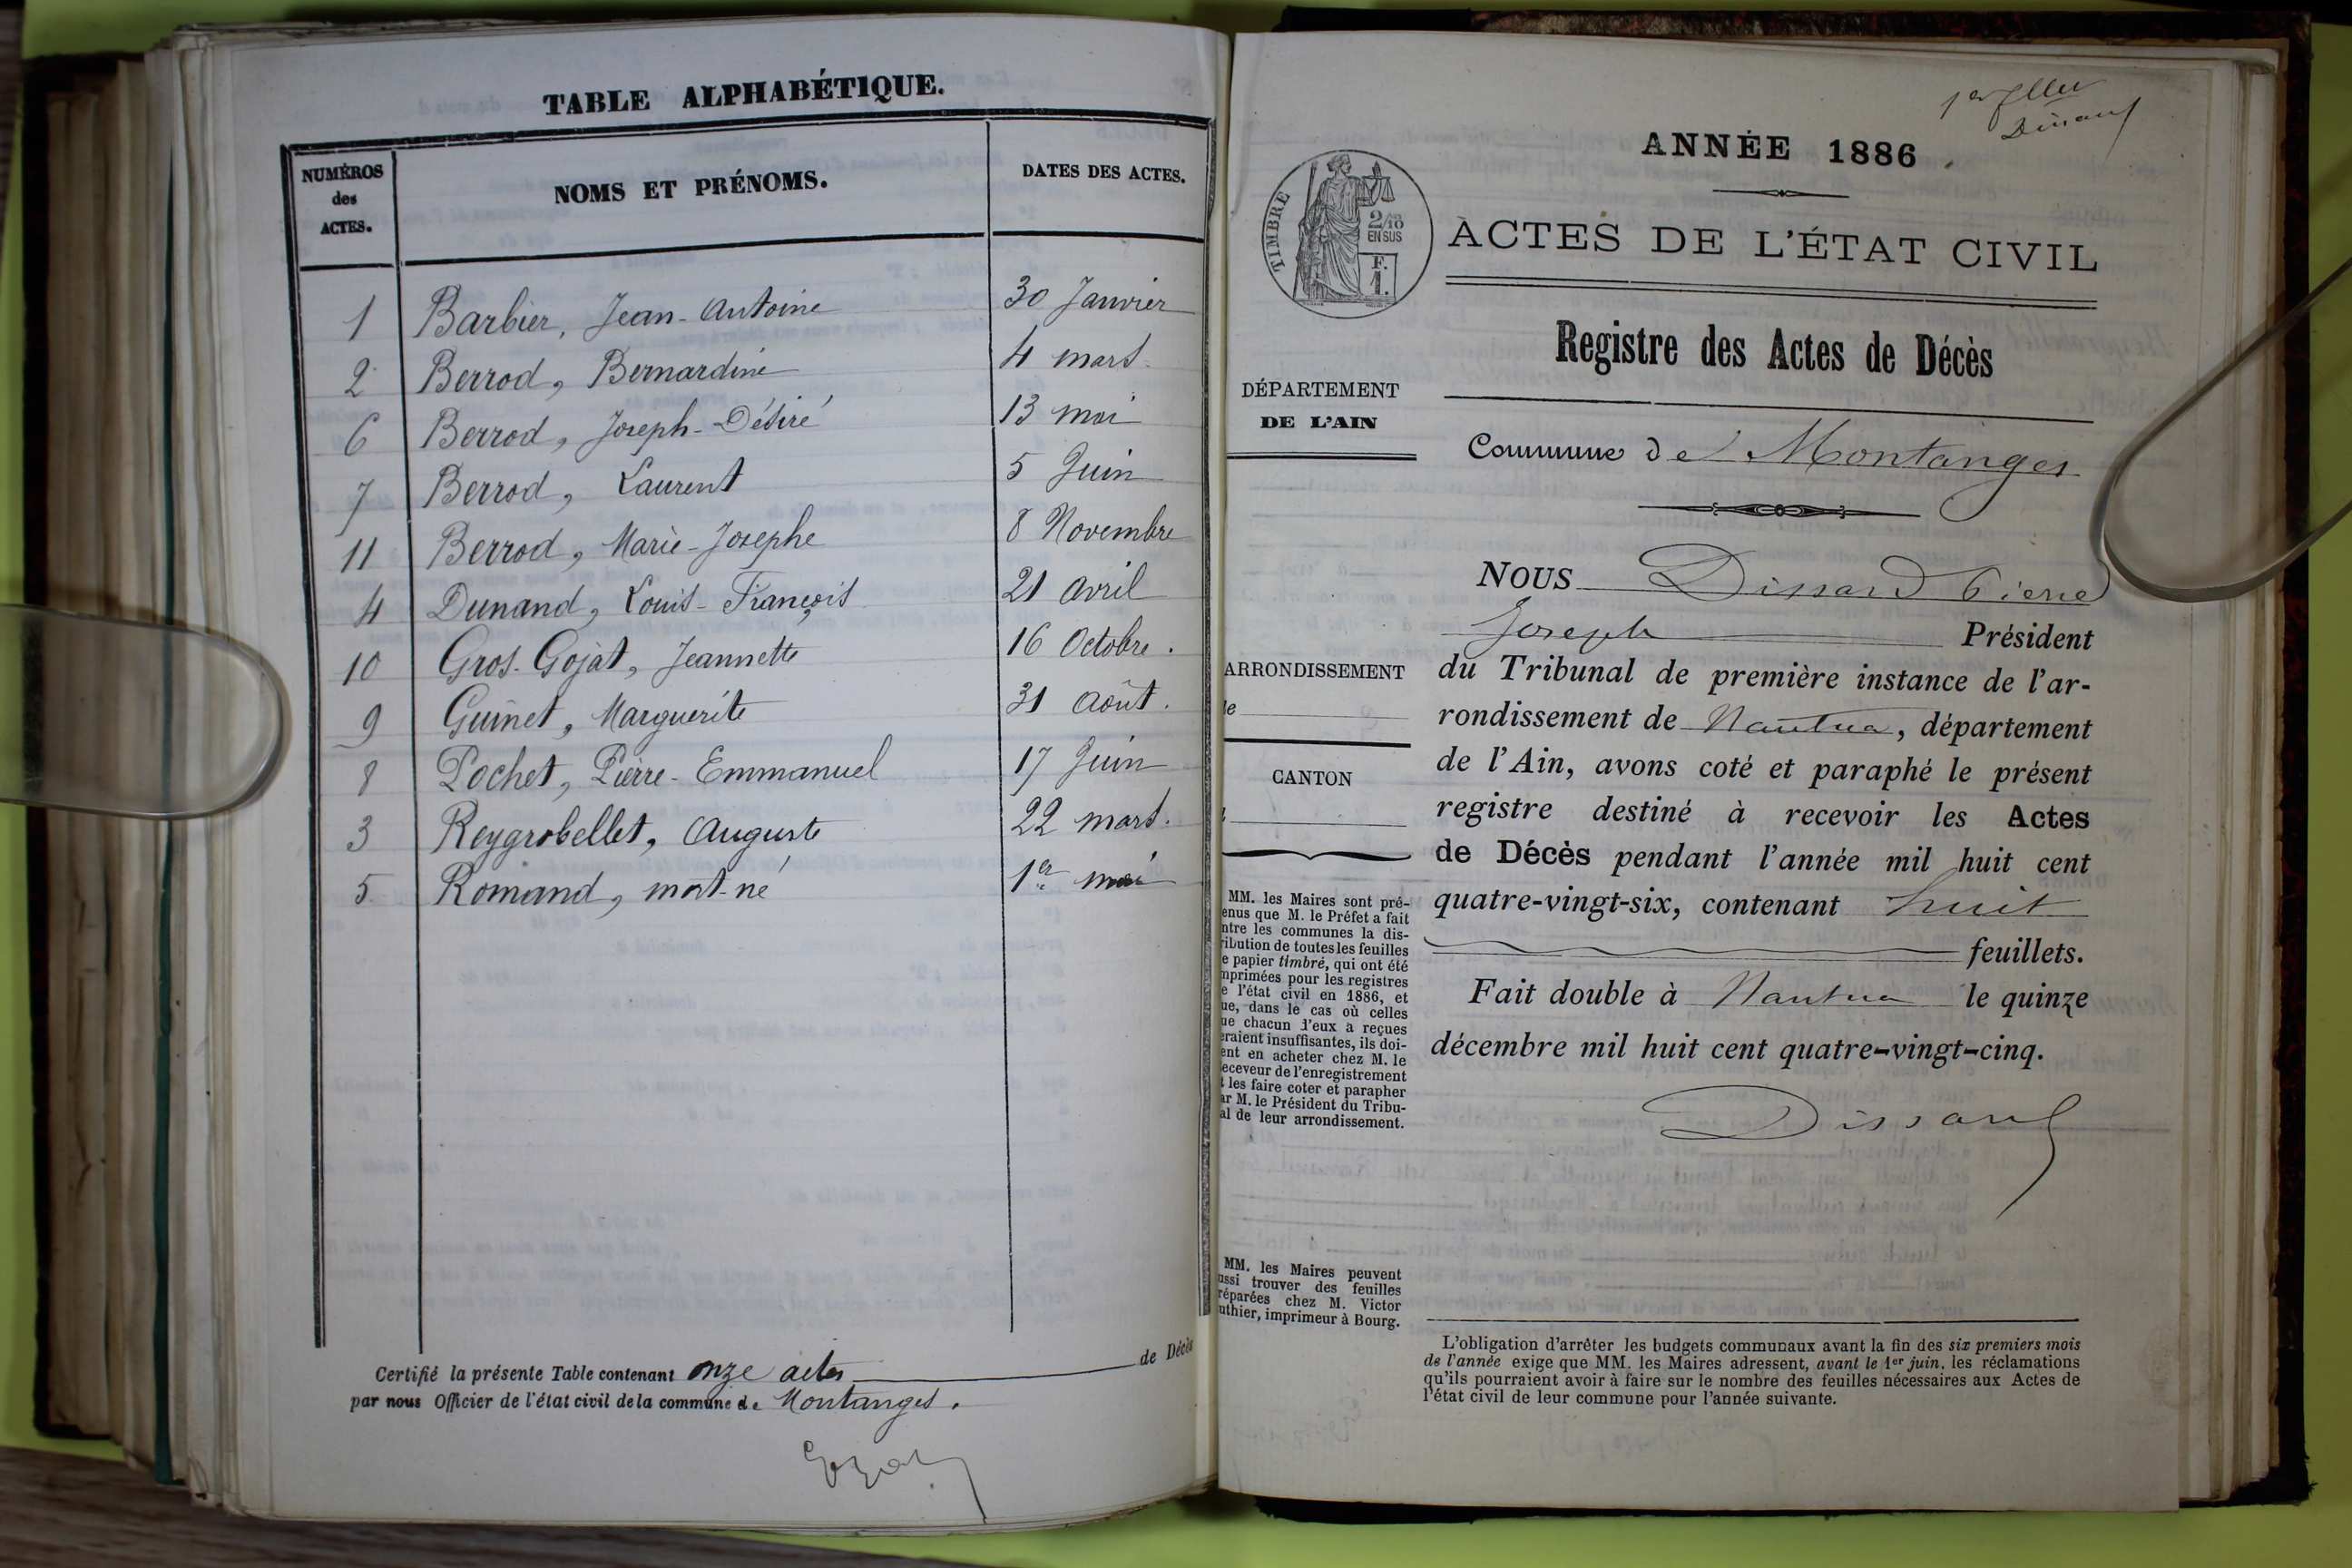 TABLE ALPHABÉTIQUE.
NUMÉROS des ACTES.
NOMS ET PRÉNOMS.
DATES DES ACTES.
1 Barbier, Jean-Antoine 30 Janvier
2 Berrod, Bernardine 4 mars
6 Berrod, Joseph-Désiré 13 mai
7 Berrod, Laurent 5 Juin
11 Berrod, Marie-Josephe 8 Novembre
4 Dunand, Louis-François 21 avril
10 Gros-Gojat, Jeannette 16 Octobre.
9 Guinet, Marguerite 31 août.
8 Pochet, Pierre-Emmanuel 17 Juin
3 Reygrobellet, Auguste 22 mars.
5 Romand, mort-né 1er mai
Certifié la présente Table contenant onze actes de Décès
par nous Officier de l'état civil de la commune de Montanges.
1er
ANNÉE 1886.
TIMBRE
2/10
EN SUS
F.
1.
ACTES DE L'ÉTAT CIVIL
Registre des Actes de Décès
DÉPARTEMENT
DE L'AIN
Commune de Montanges
NOUS Dissard Pierre
Joseph Président
du Tribunal de première instance de l'ar-
rondissement de Nantua, département
de l'Ain, avons coté et paraphé le présent
registre destiné à recevoir les Actes
de Décès pendant l'année mil huit cent
quatre-vingt-six, contenant huit
feuillets.
Fait double à Nantua le quinze
décembre mil huit cent quatre-vingt-cinq.
Dissard
ARRONDISSEMENT
CANTON
MM. les Maires sont pré-
enus que M. le Préfet a fait
ntre les communes la dis-
ribution de toutes les feuilles
e papier timbré, qui ont été
mprimées pour les registres
e l'état civil en 1886, et
ue, dans le cas où celles
ue chacun d'eux a reçues
eraient insuffisantes, ils doi-
ent en acheter chez M. le
eceveur de l'enregistrement
t les faire coter et parapher
ar M. le Président du Tribu-
al de leur arrondissement.
MM. les Maires peuvent
ussi trouver des feuilles
réparées chez M. Victor
uthier, imprimeur à Bourg.
L'obligation d'arrêter les budgets communaux avant la fin des six premiers mois
de l'année exige que MM. les Maires adressent, avant le 1er juin, les réclamations
qu'ils pourraient avoir à faire sur le nombre des feuilles nécessaires aux Actes de
l'état civil de leur commune pour l'année suivante.